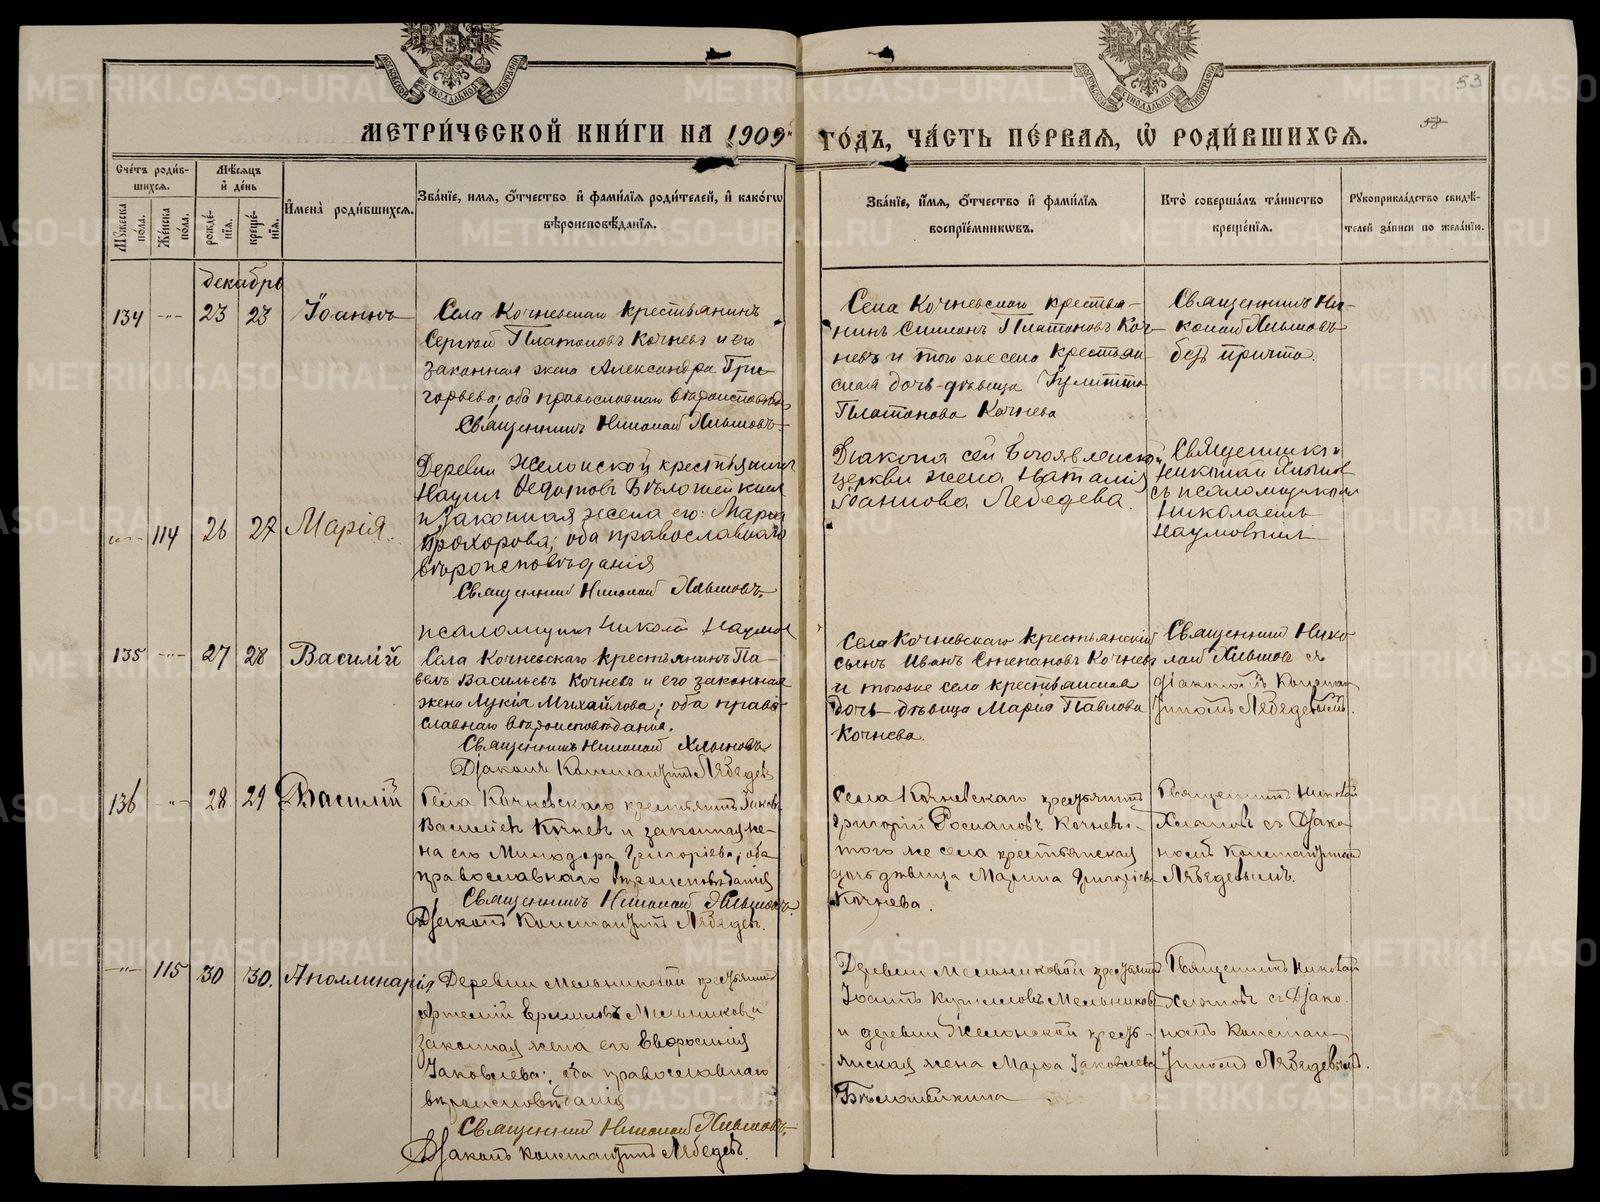 МЕТРИ́ЧЕСКОЙ КНИ́ГИ НА 1909 ГО́ДЪ, ЧА́СТЬ ПЕ́РВАЯ, Ѡ РОДИ́ВШИХСЯ.
53
Сче́тъ роди́вшихся.
Мꙋ́жеска по́ла.
Же́нска по́ла.
Мѣ́сяцъ и де́нь
рожде́нїя.
креще́нїя.
И҆мена̀ роди́вшихся.
Зва́нїе, имя, ѻ҆́тчество и҆ фами́лїя роди́телей, и҆ како́гѡ
вѣроисповѣ́данїя.
Зва́нїе, и҆́мя, ѻ҆́тчество и҆ фами́лїя
воспрїе́мникѡвъ.
Кто̀ соверша́лъ та́инство
креще́нїя.
Рꙋкоприкла́дство свидѣ́-
телей за́писи по жела́нїю.
декабрь
134 -"- 23 23 Іоаннъ
Села Кочневскаго крестьянинъ
Сергей Платоновъ Кочневъ и его
законная жена Александра Гри-
горьева; оба православнаго вѣроисповѣд.
Священникъ Николай Хлыновъ.
Села Кочневскаго крестья-
нинъ Симеонъ Платоновъ Коч-
невъ и того же села крестьян
ская дочь-дѣвица Іулитта
Платонова Кочнева
Священникъ Ни-
колай Хлыновъ
безъ причта.
-"- 114 26 27 Марія.
Деревни Желонской крестьянинъ
Наумъ Федотовъ Бѣлошейкинъ
и законная жена его: Марія
Прохорова; оба православнаго
вѣроисповѣданія
Священникъ Николай Хлыновъ.
псаломщикъ Николай Наумов
Діакона сей Богоявленской
церкви жена Наталія
Іоаннова Лебедева.
Священникъ
Николай Хлынов
съ псаломщикомъ
Николаемъ
Наумовымъ
135 -"- 27 28 Василій
Села Кочневскаго крестьянинъ Па-
велъ Васильевъ Кочневъ и его законная
жена Лукія Михайлова; оба право-
славнаго вѣроисповѣданія.
Священникъ Николай Хлыновъ
Діаконъ Константинъ Лебедевъ
Села Кочневскаго крестьянскій
сынъ Иванъ Степановъ Кочневъ
и тогоже села крестьянская
дочь-дѣвица Марія Павлова
Кочнева.
Священникъ Нико-
лай Хлыновъ съ
діакономъ Констан
тиномъ Лебедевымъ.
136 -"- 28 29 Василій
Села Кочневскаго крестьянинъ Яковъ
Васильевъ Кочневъ и законная же-
на его Минодора Григорьева; оба
православнаго вѣроисповѣданія
Священникъ Николай Хлыновъ.
Діаконъ Константинъ Лебедевъ.
Села Кочневскаго крестьянинъ
Григорій Кочневъ и
того же села крестьянская
дочь дѣвица Марина Григорьева
Кочнева.
Священникъ Николай
Хлыновъ съ Діако
номъ Константином
Лебедевымъ.
-"- 115 30 30. Аполлинарія
Деревни Мельниковой крестьянинъ
Артемій Ермиловъ Мельниковъ и
законная жена его Евфросинія
Іаковлева; оба православнаго
вѣроисповѣданія
Священникъ Николай Хлыновъ.
Діаконъ Константинъ Лебедевъ.
Деревни Мельниковой крестьянинъ
Іоаннъ Кирилловъ Мельниковъ
и деревни Желонской кресть-
янская жена Марфа Іаковлева
Бѣлошейкина
Священникъ Николай
Хлыновъ съ Діако-
номъ Констан
тиномъ Лебедевымъ.
METRIKI.GASO-URAL.RU